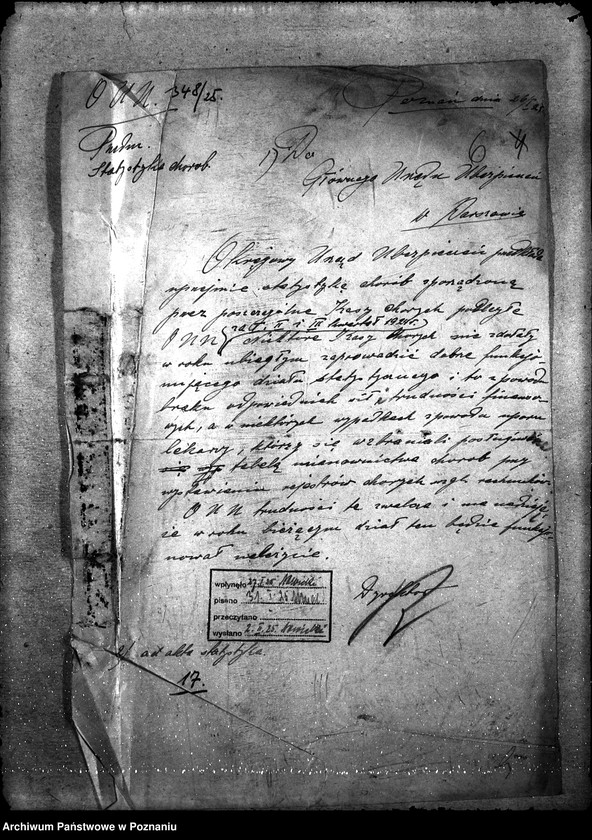 O U U. 348/25.
Poznań dnia
Przedm.
Statystyka chorób.
1) Do
Głównego Urzędu Ubezpieczeń
w Warszawie
Okręgowy Urząd Ubezpieczeń przedkłada
uprzejmie statystykę chorób sporządzoną
przez poszczególne Kasy chorych podległe
O U U (za I, II i III kwartał 1924 r.)
Niektóre Kasy chorych nie zdołały
w roku ubiegłym zaprowadzić dobrze funkcjo-
nującego działu statystycznego i to z powodu
braku odpowiednich sił i trudności finanso-
wych, a w niektórych wypadkach z powodu uporu
lekarzy, którzy się wzbraniali posługiwać
tabelą mianownictwa chorób przy
wystawieniu rejestrów chorych wzgl. rachunków.
O U U trudności te zwalcza i ma nadzieję
że w roku bieżącym dział ten będzie funkcjo-
nował należycie.
Dyrektor
wpłynęło 27.I.25
pisano 31.I.25
przeczytano
wysłano 2.II.25
2/ ad akta statystyka
17.
Archiwum Państwowe w Poznaniu